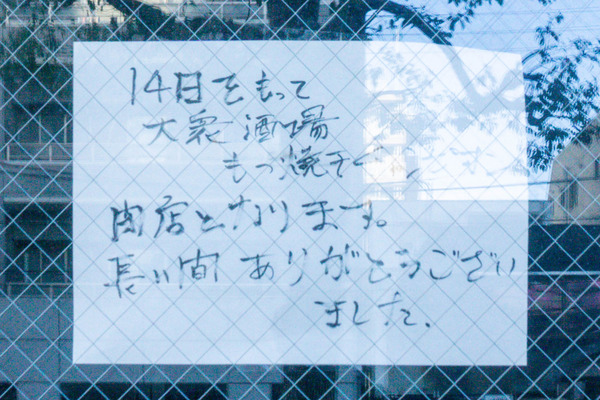 14日をもって
大衆酒場
もつ焼き
閉店となります。
長い間ありがとうござい
ました。